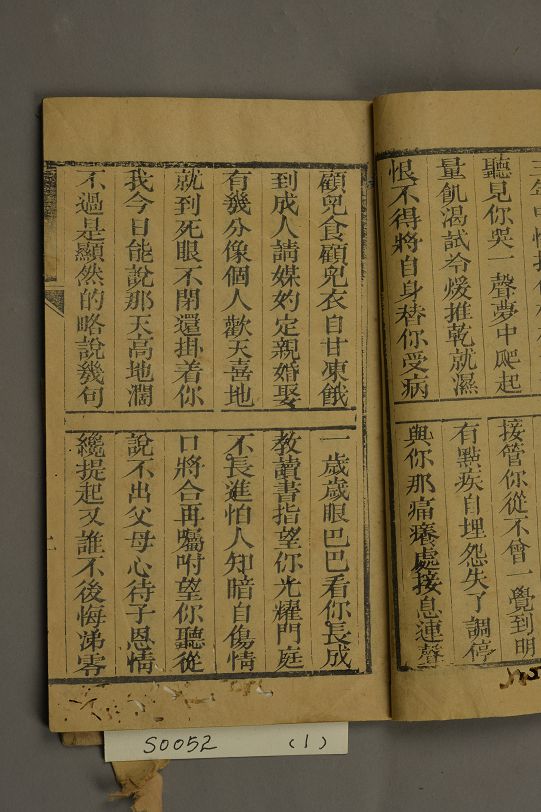 三年中
聽見你哭一聲夢中爬起
接管你從不曾一覺到明
量飢渴試冷煖推乾就濕
有點疾自埋怨失了調停
恨不得將自身替你受病
與你那痛癢處接息連聲
顧兒食顧兒衣自甘凍餓
一歲歲眼巴巴看你長成
到成人請媒妁定親婚娶
教讀書指望你光耀門庭
有幾分像個人歡天喜地
不長進怕人知暗自傷情
就到死眼不閉還掛着你
口將合再囑咐望你聽從
我今日能說那天高地濶
說不出父母心待子恩情
不過是顯然的略說幾句
纔提起又誰不後悔涕零
S0052 (1)